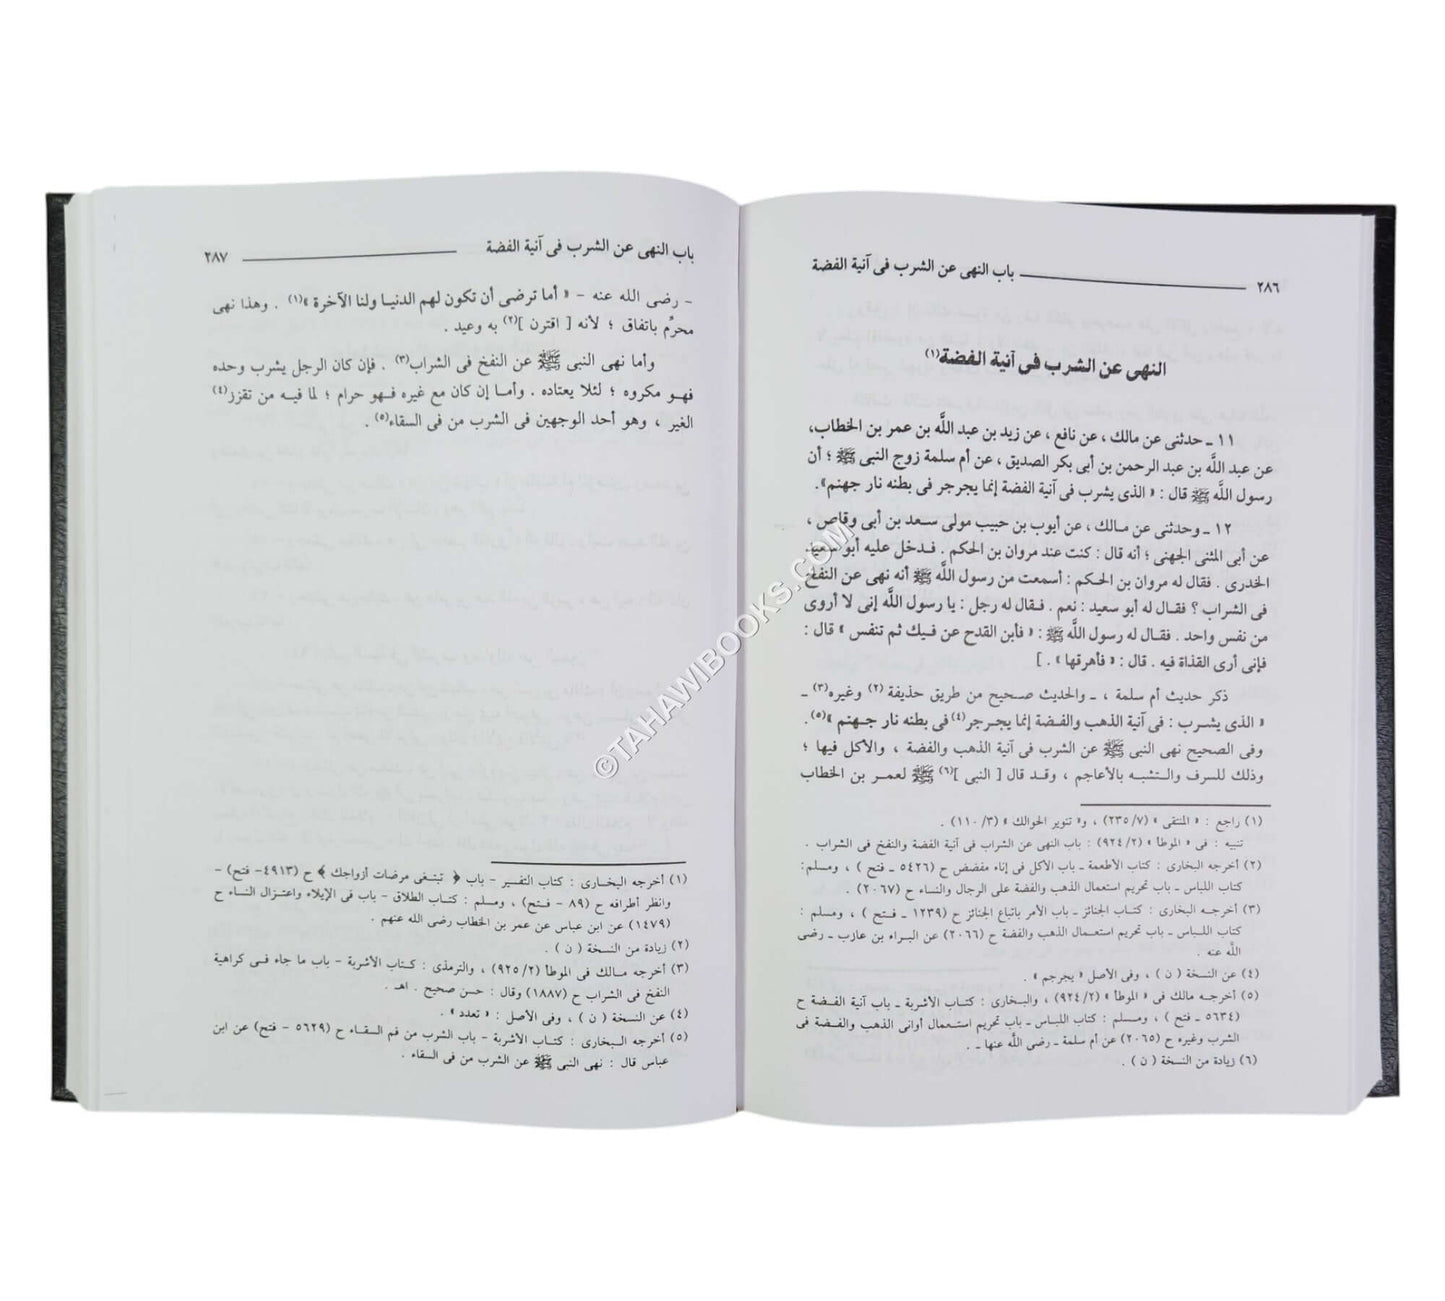 باب النهى عن الشرب فى آنية الفضة ٢٨٦
النهى عن الشرب فى آنية الفضة(١)
١١ ـ حدثنى عن مالك ، عن نافع ، عن زيد بن عبد اللَّه بن عمر بن الخطاب،
عن عبد اللَّه بن عبد الرحمن بن أبى بكر الصديق ، عن أم سلمة زوج النبى ﷺ ؛ أن
رسول اللَّه ﷺ قال : « الذى يشرب فى آنية الفضة إنما يجرجر فى بطنه نار جهنم».
١٢ ـ وحدثنى عن مالك ، عن أيوب بن حبيب مولى سعد بن أبى وقاص ،
عن أبى المثنى الجهنى ؛ أنه قال : كنت عند مروان بن الحكم . فدخل عليه أبو سعيد
الخدرى . فقال له مروان بن الحكم : أسمعت من رسول اللَّه ﷺ أنه نهى عن النفخ
فى الشراب ؟ فقال له أبو سعيد : نعم . فقال له رجل : يا رسول اللَّه إنى لا أروى
من نفس واحد . فقال له رسول اللَّه ﷺ : « فأبن القدح عن فيك ثم تنفس » قال :
فإنى أرى القذاة فيه . قال : « فأهرقها » . ]
ذكر حديث أم سلمة ، ـ والحديث صحيح من طريق حذيفة (٢) وغيره(٣) ـ
« الذى يشرب : فى آنية الذهب والفضة إنما يجرجر(٤) فى بطنه نار جهنم »(٥) .
وفى الصحيح نهى النبى ﷺ عن الشرب فى آنية الذهب والفضة ، والأكل فيها ؛
وذلك للسرف والتشبه بالأعاجم ، وقد قال [ النبى ](٦) ﷺ لعمر بن الخطاب
(١) راجع : « المنتقى » (٧/ ٢٣٥) ، و« تنوير الحوالك » (٣/ ١١٠) .
تنبيه : فى « الموطأ » (٢/ ٩٢٤) : باب النهى عن الشراب فى آنية الفضة والنفخ فى الشراب .
(٢) أخرجه البخارى : كتاب الأطعمة ـ باب الأكل فى إناء مفضض ح (٥٤٢٦ ـ فتح) ، ومسلم:
كتاب اللباس ـ باب تحريم استعمال الذهب والفضة على الرجال والنساء ح (٢٠٦٧) .
(٣) أخرجه البخارى : كتاب الجنائز ـ باب الأمر باتباع الجنائز ح (١٢٣٩ ـ فتح ) ، ومسلم :
كتاب اللباس ـ باب تحريم استعمال الذهب والفضة ح (٢٠٦٦) عن البراء بن عازب ـ رضى
اللَّه عنه .
(٤) عن النسخة ( ن ) ، وفى الأصل « يجرجم » .
(٥) أخرجه مالك فى « الموطأ » (٢/ ٩٢٤) ، والبخارى : كتاب الأشربة ـ باب آنية الفضة ح
(٥٦٣٤ ـ فتح ) ، ومسلم : كتاب اللباس ـ باب تحريم استعمال أوانى الذهب والفضة فى
الشرب وغيره ح (٢٠٦٥) عن أم سلمة ـ رضى اللَّه عنها ـ .
(٦) زيادة من النسخة ( ن ) .
باب النهى عن الشرب فى آنية الفضة ٢٨٧
- رضى الله عنه - « أما ترضى أن تكون لهم الدنيا ولنا الآخرة »(١) . وهذا نهى
محرِّم باتفاق ؛ لأنه [ اقترن ](٢) به وعيد .
وأما نهى النبى ﷺ عن النفخ فى الشراب(٣) . فإن كان الرجل يشرب وحده
فهو مكروه ؛ لئلا يعتاده . وأما إن كان مع غيره فهو حرام ؛ لما فيه من تقزز(٤)
الغير ، وهو أحد الوجهين فى الشرب من فى السقاء(٥) .
(١) أخرجه البخارى : كتاب التفسير - باب ﴿ تبتغى مرضات أزواجك ﴾ ح (٤٩١٣- فتح) -
وانظر أطرافه ح (٨٩ - فتح) ، ومسلم : كتاب الطلاق - باب فى الإيلاء واعتزال النساء ح
(١٤٧٩) عن ابن عباس عن عمر بن الخطاب رضى الله عنهم .
(٢) زيادة من النسخة ( ن ) .
(٣) أخرجه مالك فى الموطأ (٢/ ٩٢٥) ، والترمذى : كتاب الأشربة - باب ما جاء فى كراهية
النفخ فى الشراب ح (١٨٨٧) وقال : حسن صحيح . اهـ .
(٤) عن النسخة ( ن ) ، وفى الأصل : « تعدد » .
(٥) أخرجه البخارى : كتاب الأشربة - باب الشرب من فم السقاء ح (٥٦٢٩ - فتح) عن ابن
عباس قال : نهى النبى ﷺ عن الشرب من فى السقاء .
©TAHAWIBOOKS.COM